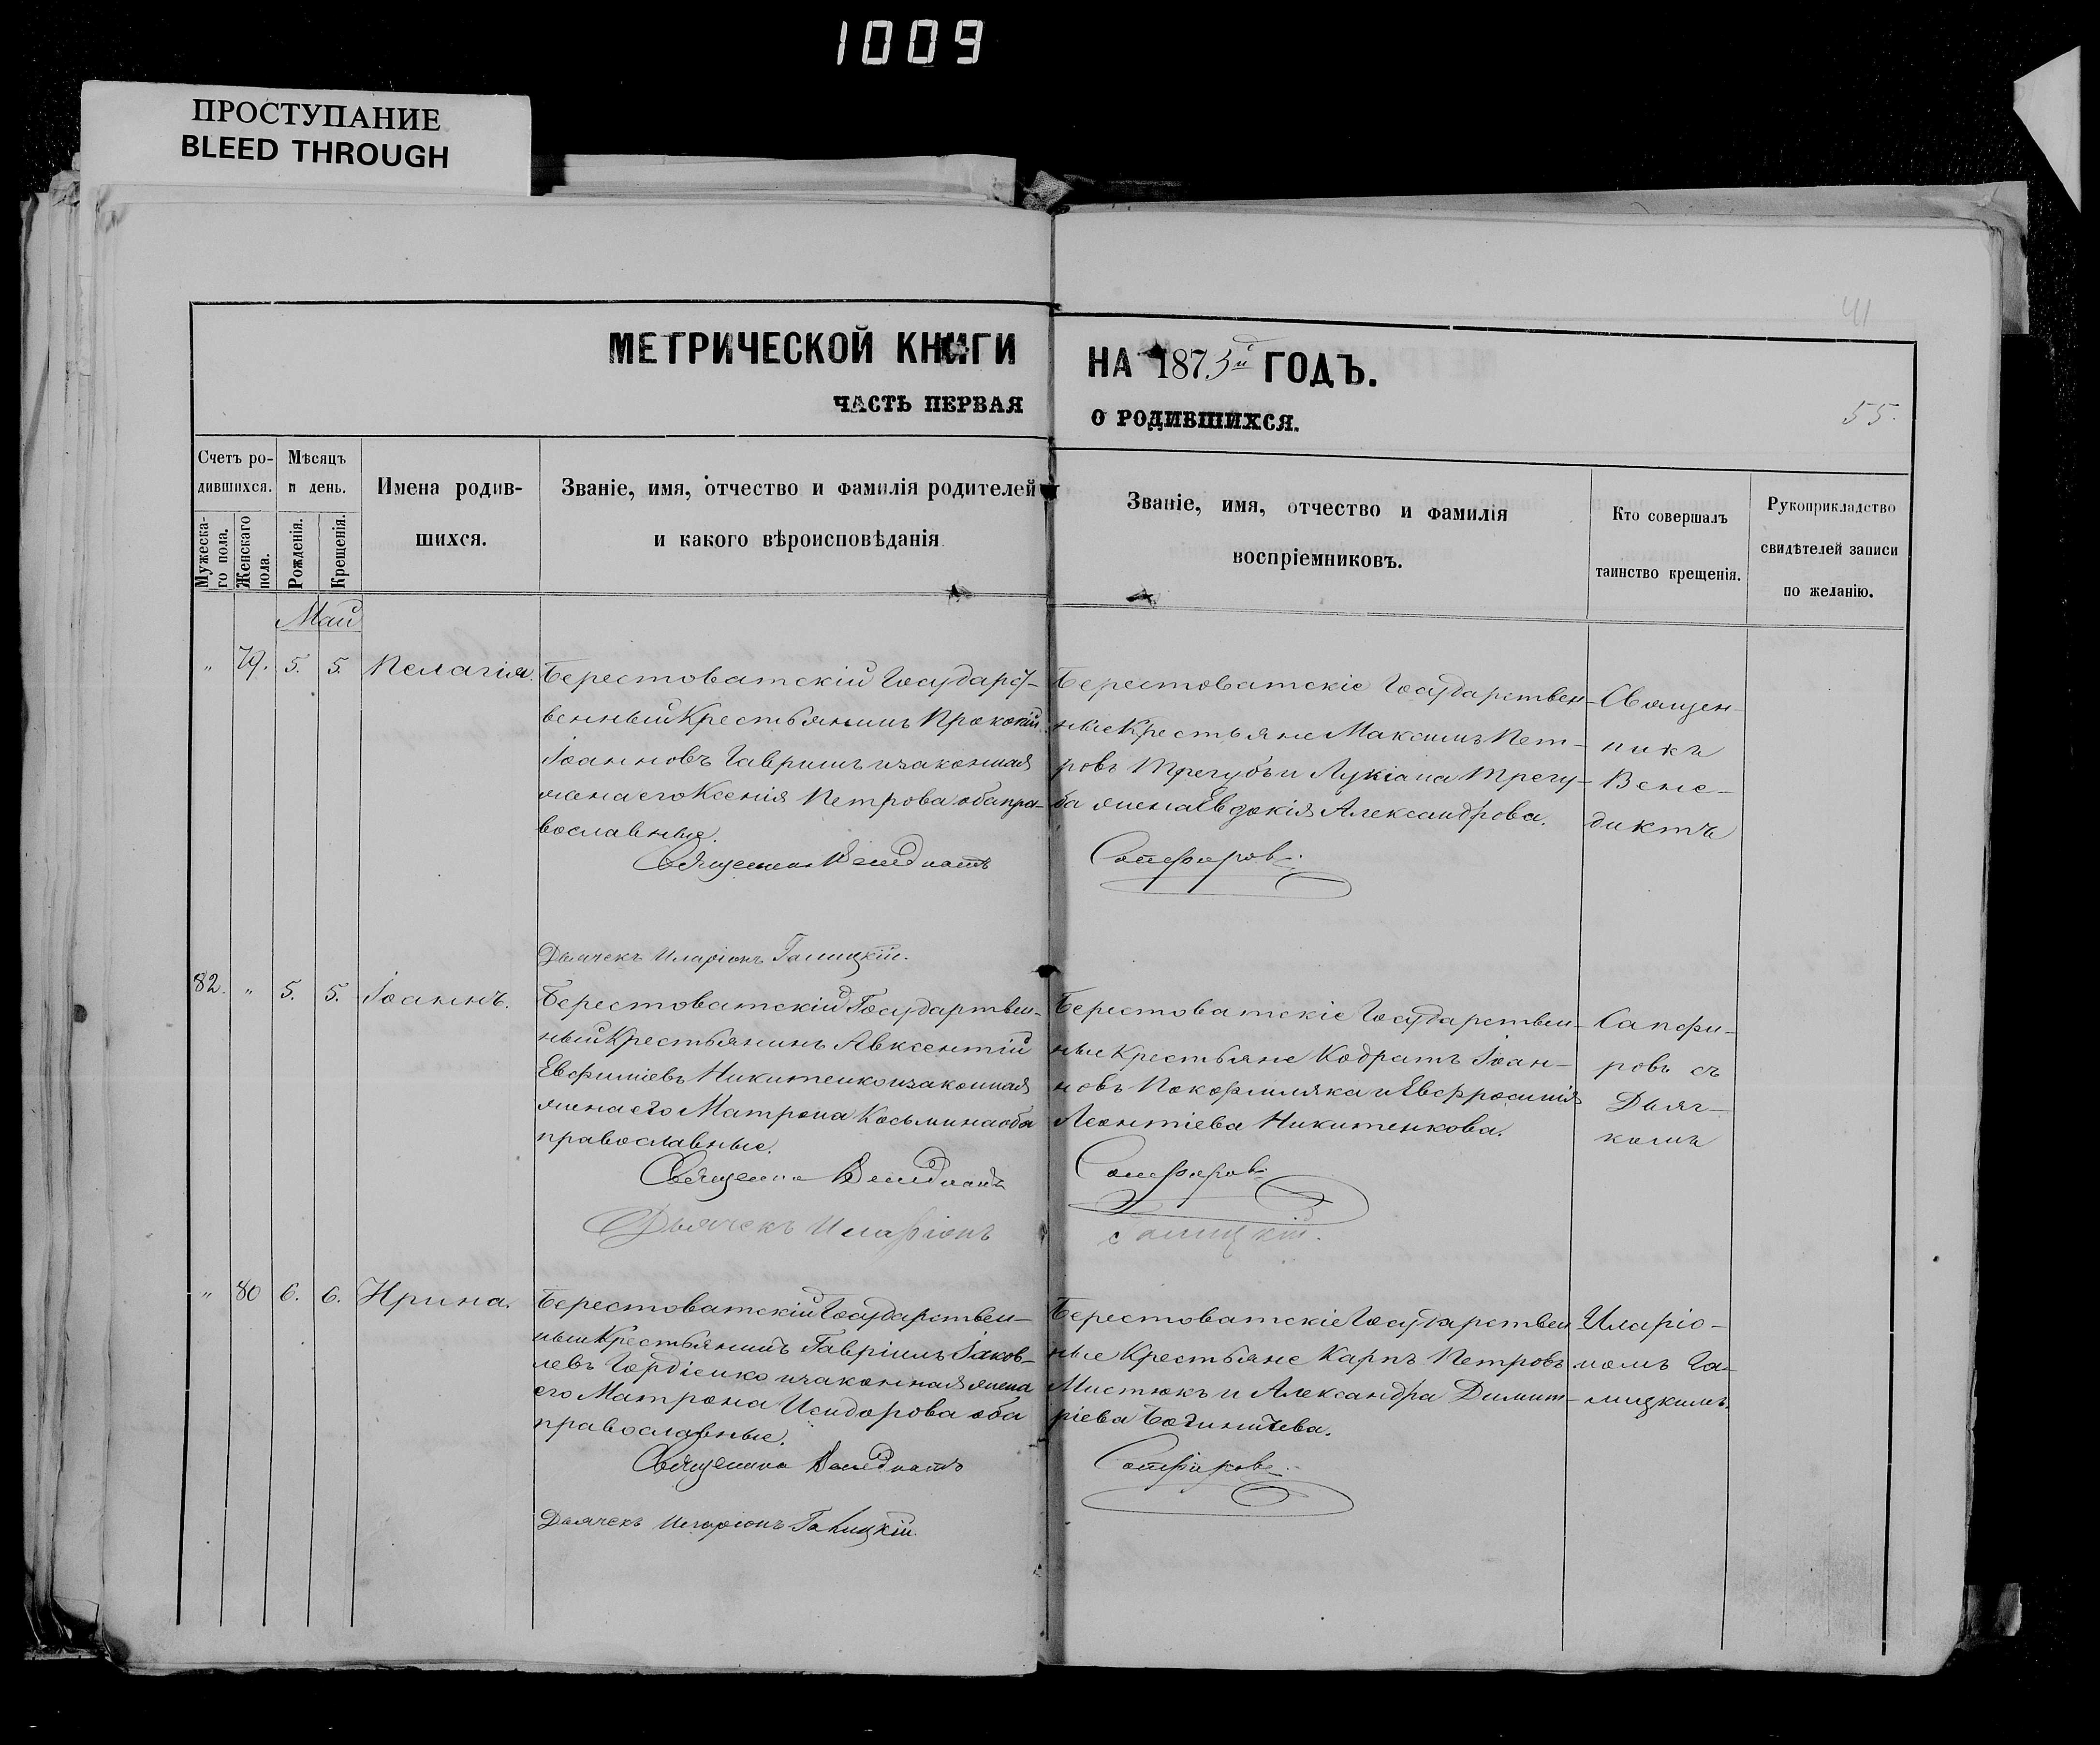 1009
ПРОСТУПАНИЕ
BLEED THROUGH
МЕТРИЧЕСКОЙ КНИГИ НА 1873й ГОДЪ.
ЧАСТЬ ПЕРВАЯ О РОДИВШИХСЯ.
55.
Счетъ ро-
дившихся.
Мужеска-
го пола.
Женскаго
пола.
Мѣсяцъ
и день.
Рожденія.
Крещенія.
Имена родив-
шихся.
Званіе, имя, отчество и фамилія родителей
и какого вѣроисповѣданія
Званіе, имя, отчество и фамилія
воспріемниковъ.
Кто совершалъ
таинство крещенія.
Рукоприкладство
свидѣтелей записи
по желанію.
Май
" 79. 5. 5. Пелагія.
Берестоватскій Государст-
венный Крестьянинъ Прокопій
Іоанновъ Гавришъ и законная
жена его Ксенія Петрова оба пра-
вославные.
Священникъ Венедиктъ
Дьячекъ Иларіонъ Галицкій.
Берестоватскіе Государствен-
ные Крестьяне Максимъ Пет-
ровъ Трегубъ и Лукіана Трегу-
ба жена Евдокія Александрова.
Сапфировъ.
Священ-
никъ
Вене-
диктъ
82. " 5. 5. Іоаннъ.
Берестоватскій Государствен-
ный Крестьянинъ Авксентій
Евфиміевъ Никитенко и законная
жена его Матрона Косьмина оба
православные.
Священникъ Венедиктъ
Дьячекъ Иларіонъ
Берестоватскіе Государствен-
ные Крестьяне Кодратъ Іоан-
новъ и Евфросинія
Леонтіева Никитенкова.
Сапфировъ.
Галицкій.
Сапфи-
ровъ съ
Дьяч-
комъ
" 80 6. 6. Ирина.
Берестоватскій Государствен-
ный Крестьянинъ Гавріилъ Іаков-
левъ Гордіенко и законная жена
его Матрона Исидорова оба
православные.
Священникъ Венедиктъ
Дьячекъ Иларіонъ Галицкій.
Берестоватскіе Государствен
ные Крестьяне Карпъ Петровъ
Мистюкъ и Александра Димит-
ріева
Сапфировъ.
Иларіо-
номъ Га-
лицкимъ.